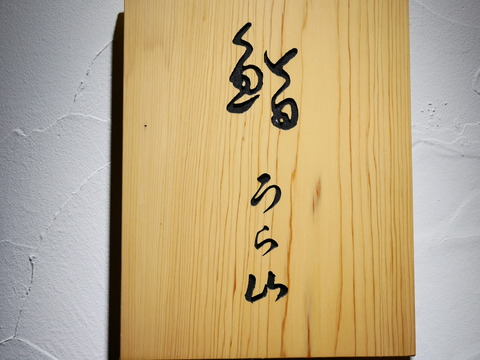 鮨 うら山